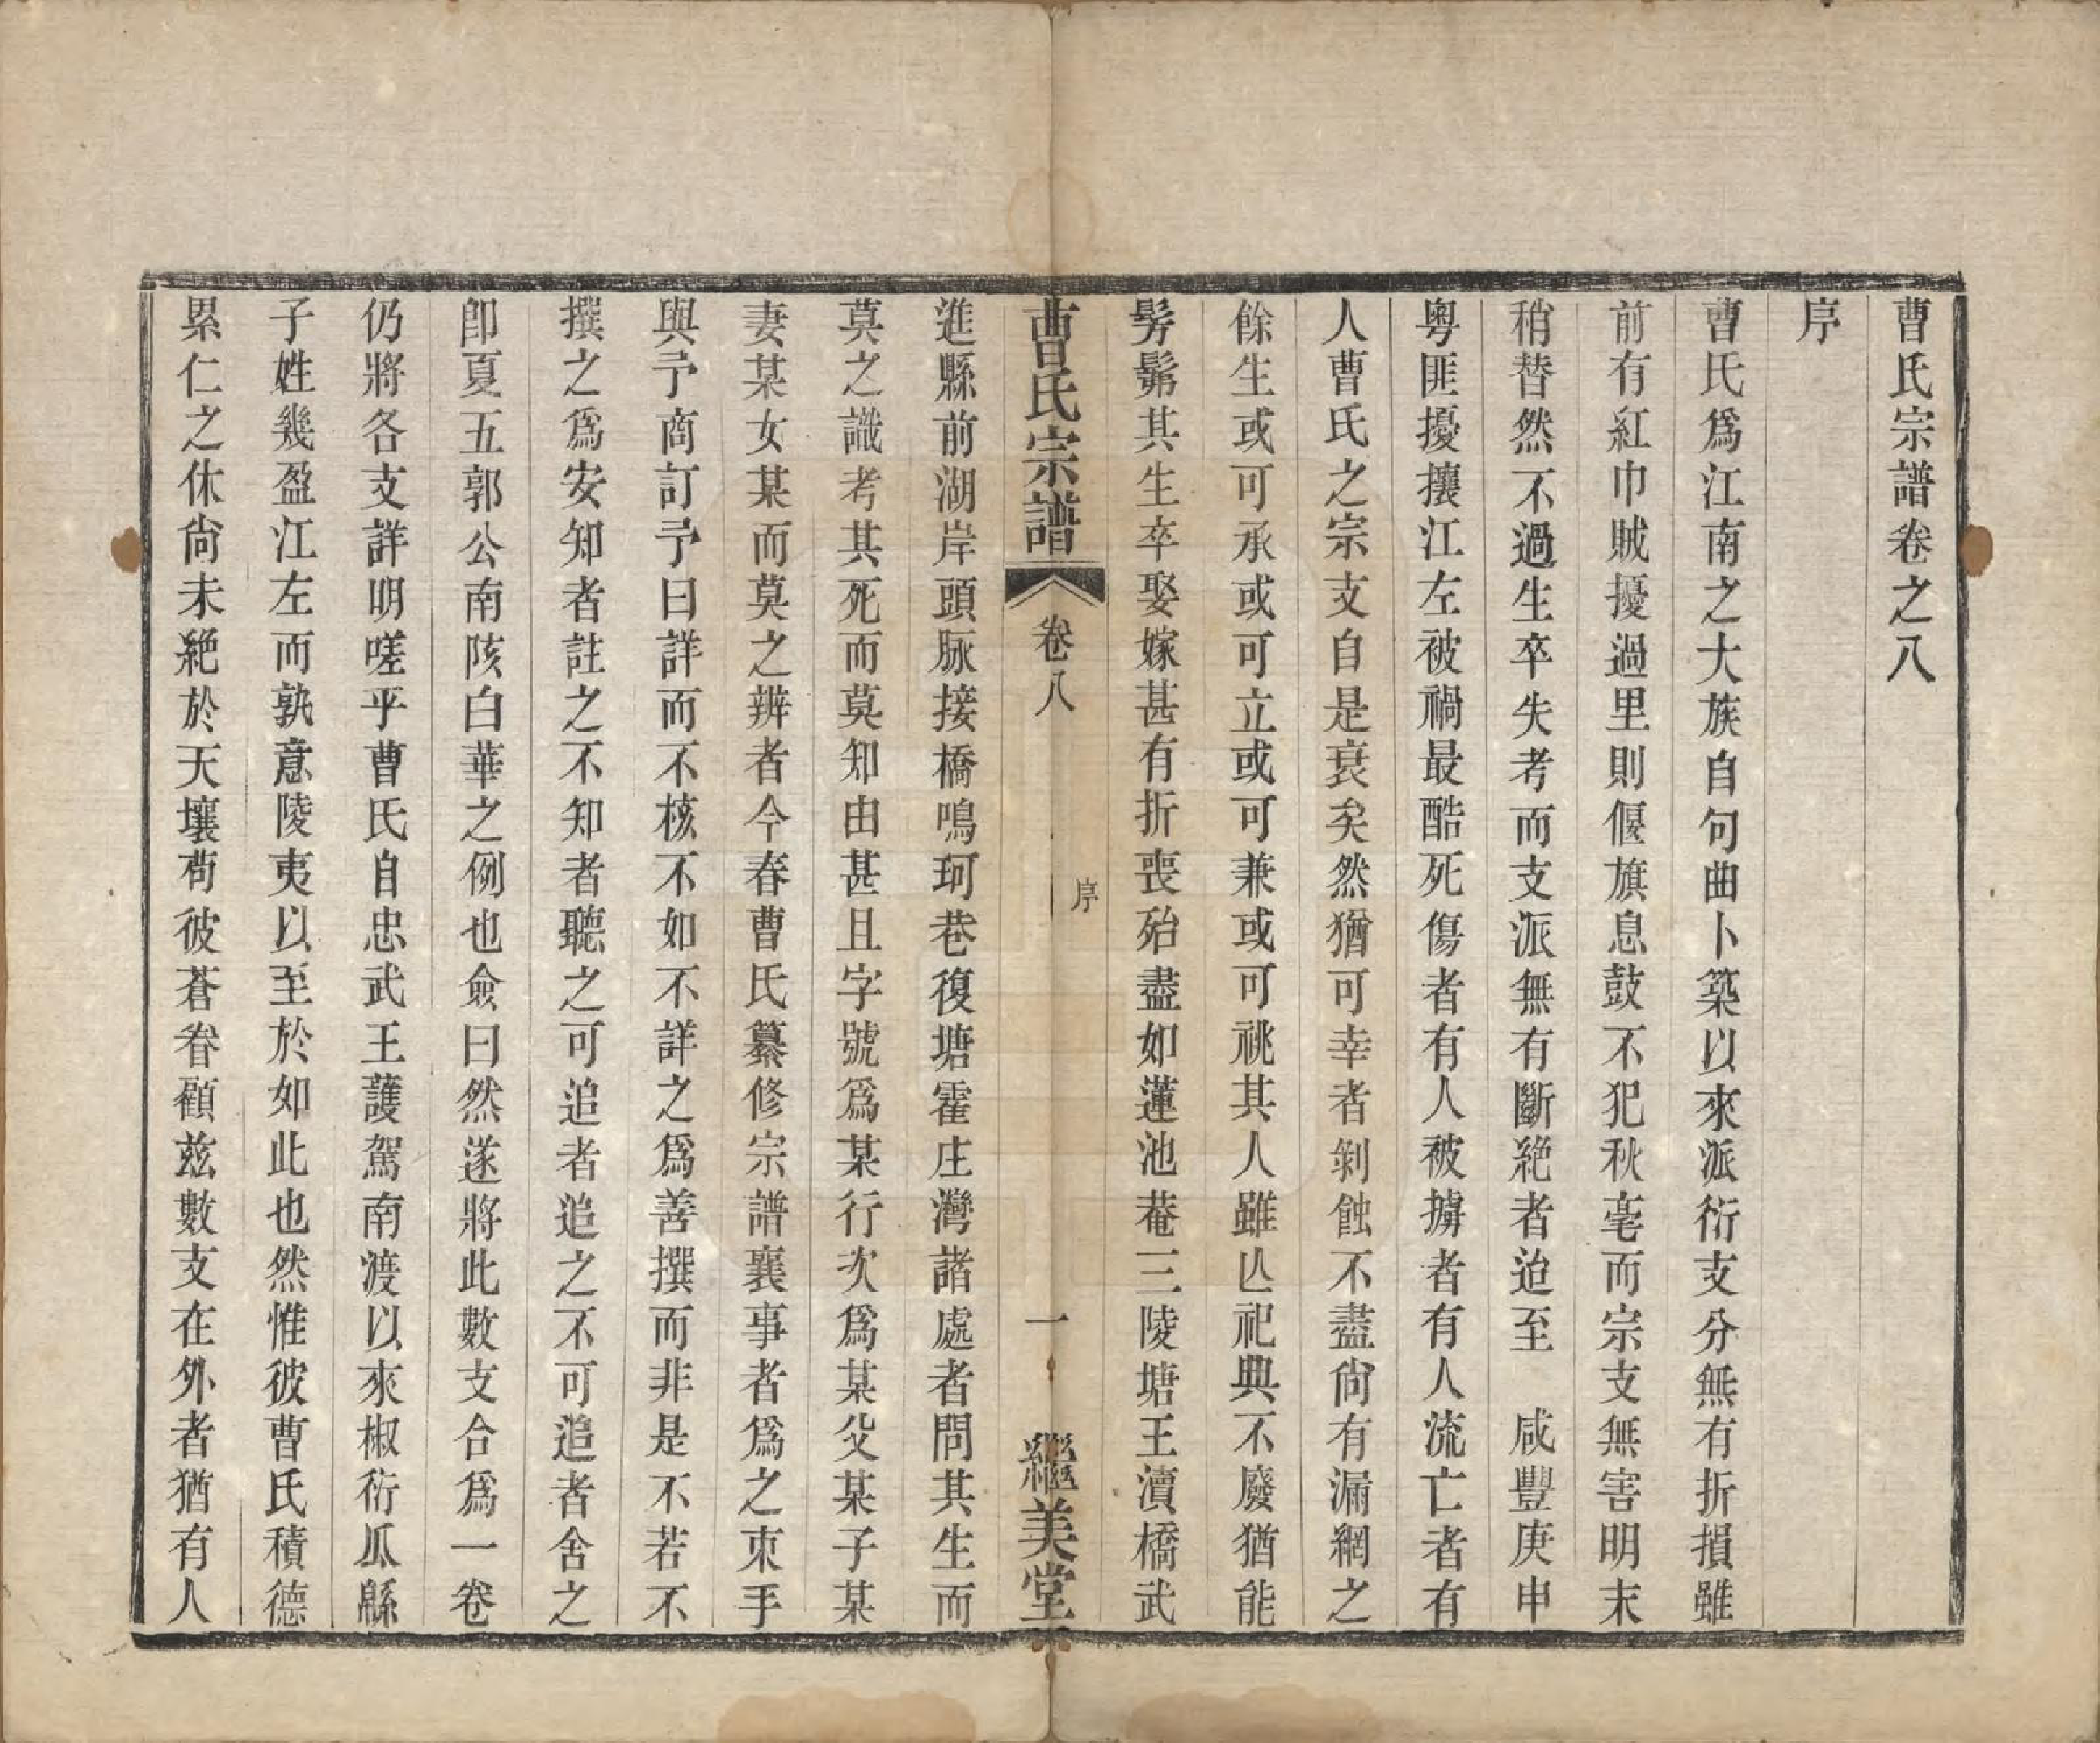 曹氏宗譜卷之八
序
曹氏爲江南之大族自句曲卜築以來派衍支分無有折損雖
前有紅巾賊擾過里則偃旗息鼓不犯秋毫而宗支無害明末
稍替然不過生卒失考而支派無有斷絕者迨至　咸豐庚申
粵匪擾攘江左被禍最酷死傷者有人被擄者有人流亡者有
人曹氏之宗支自是衰矣然猶可幸者剝蝕不盡尙有漏網之
餘生或可承或可立或可兼或可祧其人雖亾祀典不廢猶能
髣髴其生卒娶嫁甚有折喪殆盡如蓮池菴三陵塘王瀆橋武
曹氏宗譜
卷八
序
一
繼美堂
進縣前湖岸頭脉接橋鳴珂巷復塘霍庄灣諸處者問其生而
莫之識考其死而莫知由甚且字號爲某行次爲某父某子某
妻某女某而莫之辨者今春曹氏纂修宗譜襄事者爲之束手
與予商訂予曰詳而不核不如不詳之爲善撰而非是不若不
撰之爲安知者註之不知者聽之可追者追之不可追者舍之
卽夏五郭公南陔白華之例也僉曰然遂將此數支合爲一卷
仍將各支詳明嗟乎曹氏自忠武王護駕南渡以來椒衍瓜緜
子姓幾盈江左而孰意陵夷以至於如此也然惟彼曹氏積德
累仁之休尙未絕於天壤苟彼蒼眷顧玆數支在外者猶有人